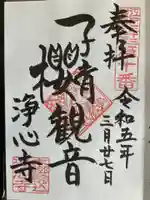 奉拝
令和五年
三月廿七日
子育観音
櫻
浄心寺